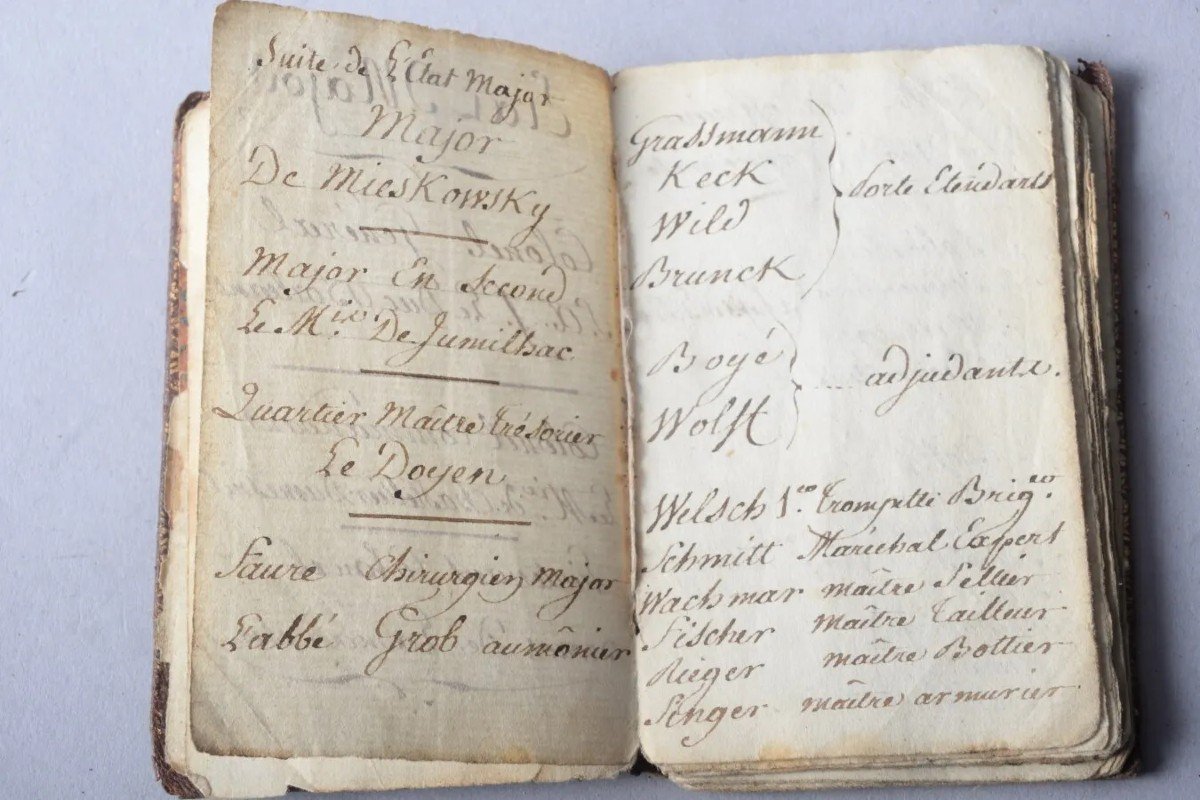 Suite de L'État Major
Major
De Mieskowsky
Major En Second
Le M.is De Jumilhac
Quartier Maître Trésorier
Le Doyen
Faure Chirurgien Major
L'abbé Grob aumônier
Grassmann
Keck
Wild
Brunck
Porte Etendarts
Boyé
Wolff
adjudants.
Welsch 1.er trompette Brig.er
Schmitt Maréchal Expert
Wachmar maître Sellier
Fischer maître Tailleur
Rieger maître Bottier
Singer maître armurier